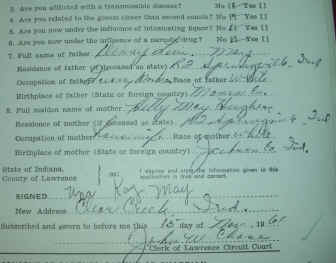 3. Are you afflicted with a transmissible disease? No [ ] Yes [ ]
4. Are you related to the groom closer than second cousin? No [ ] Yes [ ]
5. Are you now under the influence of intoxicating liquor? No [ ] Yes [ ]
6. Are you now under the influence of a narcotic drug? No [ ] Yes [ ]
7. Full name of father May
Residence of father (if deceased so state) R2 Springville, Ind
Occupation of father Race of father White
Birthplace of father (State or foreign country) Monroe Co.
8. Full maiden name of mother Betty May Hughes
Residence of mother (if deceased so state) R2 Springville, Ind
Occupation of mother housewife Race of mother white
Birthplace of mother (State or foreign country) Jackson Co Ind.
State of Indiana,
County of Lawrence
SS: I depose and state the information given in this application is true and correct.
SIGNED Una Kay May
New Address Clear Creek Ind.
Subscribed and sworn to before me this 15 day of Nov. 1961
John W. Chase
Clerk of Lawrence Circuit Court